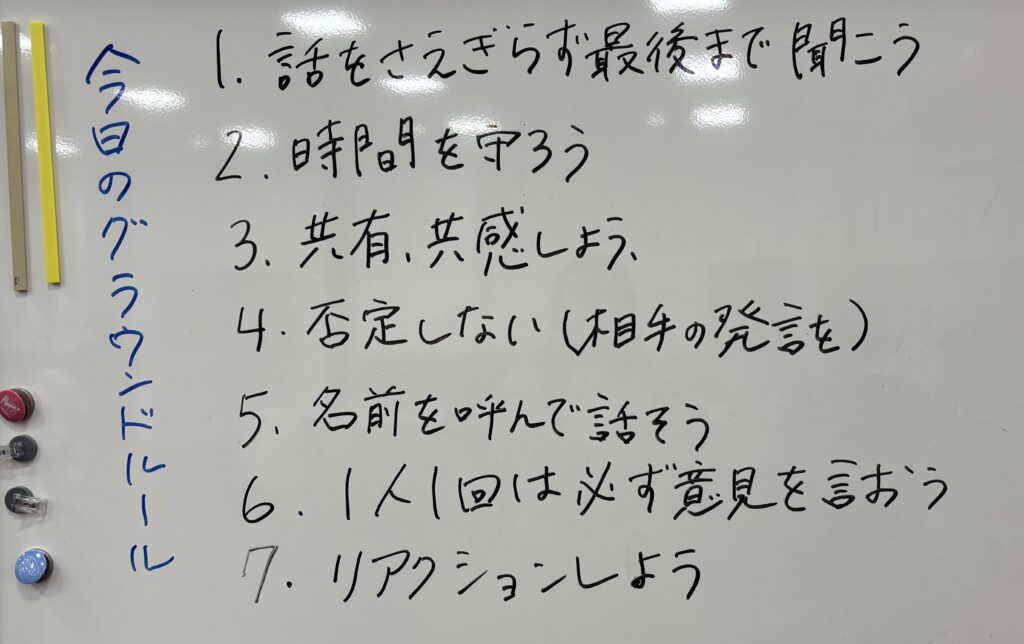 今日のグラウンドルール
1. 話をさえぎらず最後まで聞こう
2. 時間を守ろう
3. 共有、共感しよう、
4. 否定しない(相手の発言を)
5. 名前を呼んで話そう
6. 1人1回は必ず意見を言おう
7. リアクションしよう